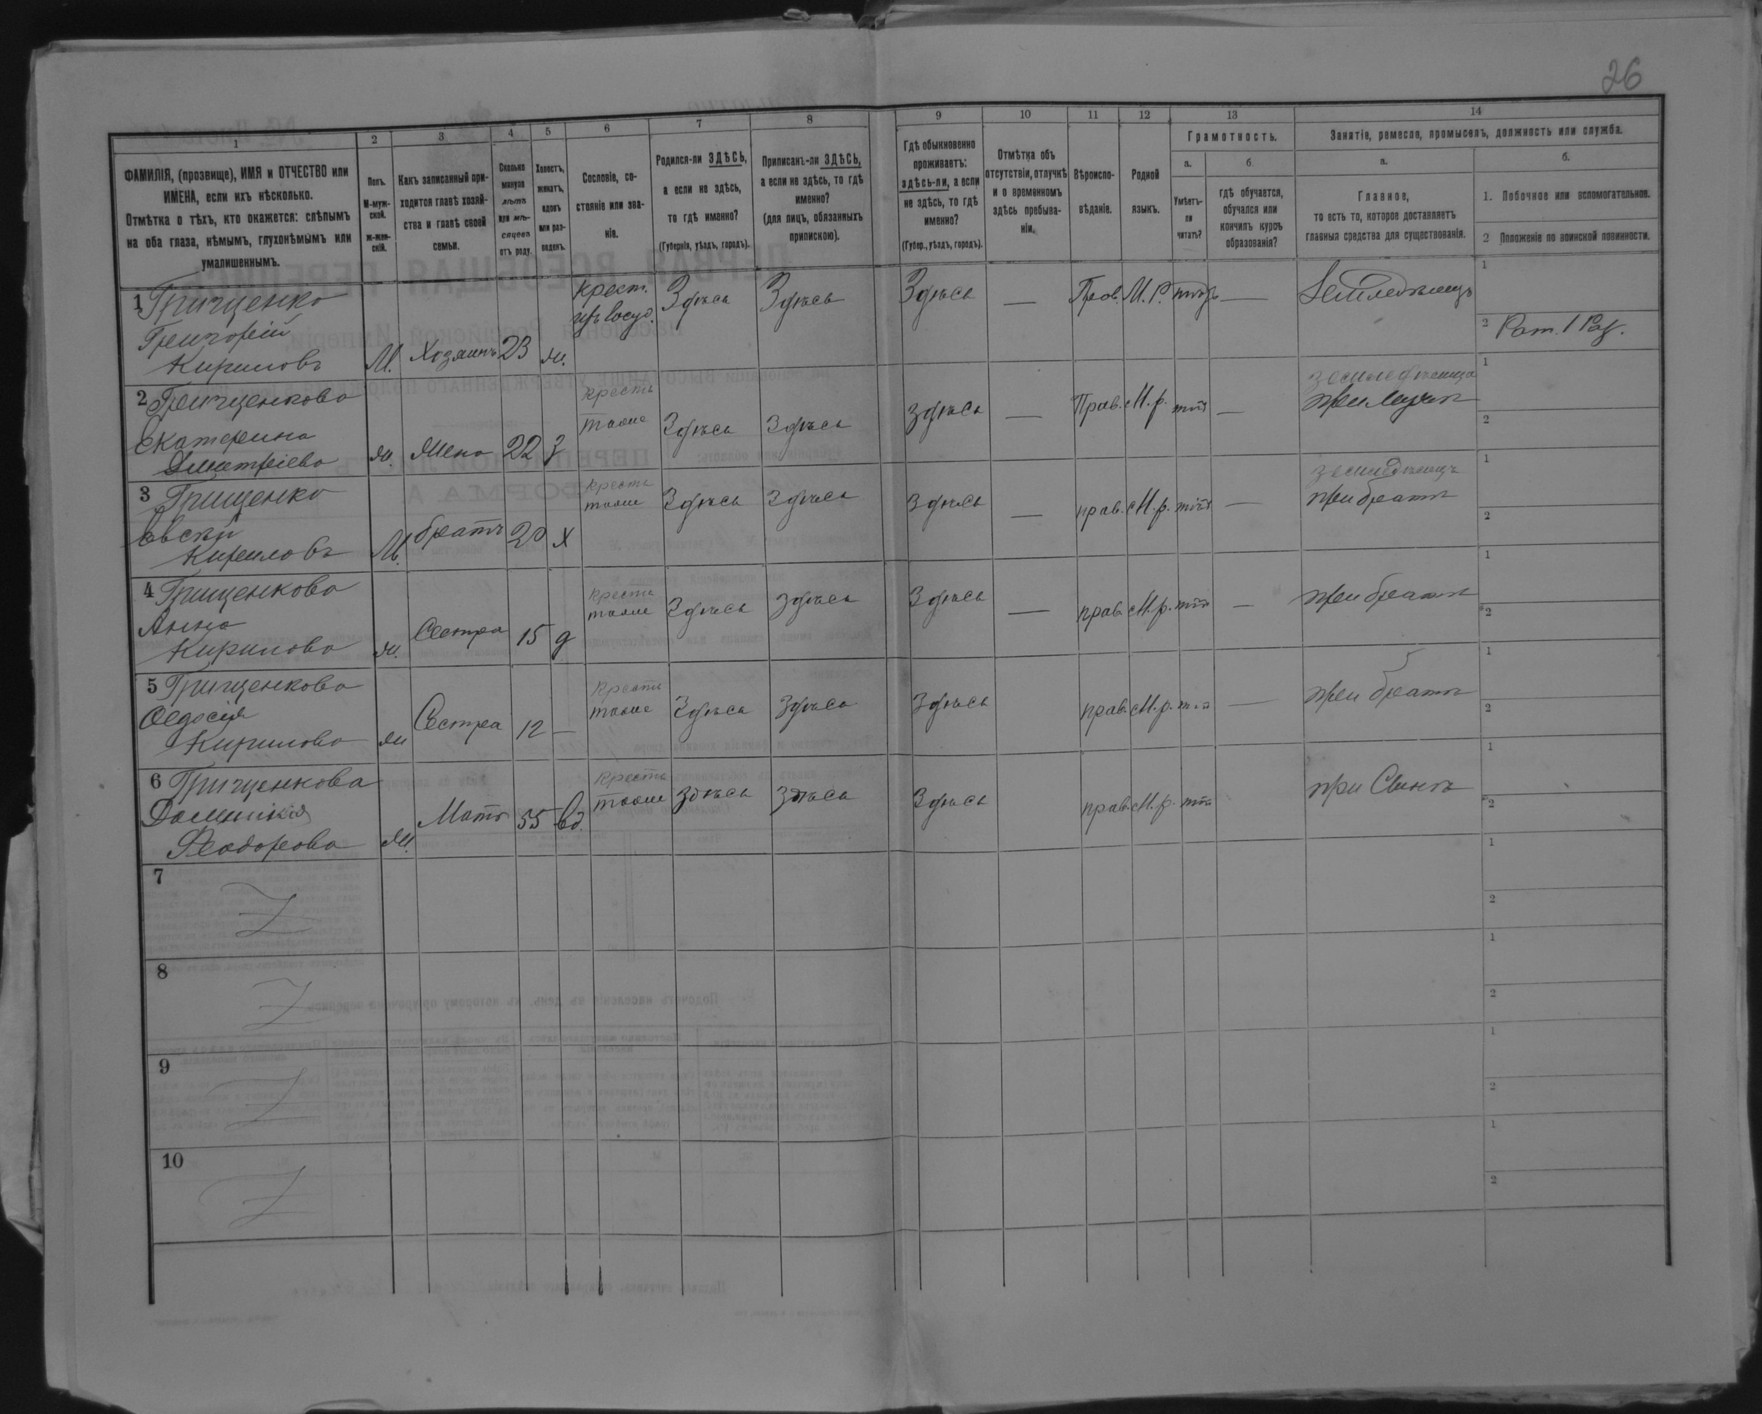 26
1
2
3
4
5
6
7
8
9
10
11
12
13
14
ФАМИЛІЯ, (прозвище), ИМЯ и ОТЧЕСТВО или
ИМЕНА, если ихъ нѣсколько.
Отмѣтка о тѣхъ, кто окажется: слѣпымъ
на оба глаза, нѣмымъ, глухонѣмымъ или
умалишеннымъ.
Полъ.
М-муж-
ской.
ж-жен-
скій.
Какъ записанный при-
ходится главѣ хозяй-
ства и главѣ своей
семьи.
Сколько
минуло
лѣтъ
или мѣ-
сяцевъ
отъ роду.
Холостъ,
женатъ,
вдовъ
или раз-
веденъ.
Сословіе, со-
стояніе или зва-
ніе.
Родился-ли ЗДѢСЬ,
а если не здѣсь,
то гдѣ именно?
(Губернія, уѣздъ, городъ).
Приписанъ-ли ЗДѢСЬ,
а если не здѣсь, то гдѣ
именно?
(для лицъ, обязанныхъ
припискою).
Гдѣ обыкновенно
проживаетъ:
здѣсь-ли, а если
не здѣсь, то гдѣ
именно?
(Губер., уѣздъ, городъ).
Отмѣтка объ
отсутствіи, отлучкѣ
и о временномъ
здѣсь пребыва-
ніи.
Вѣроиспо-
вѣданіе.
Родной
языкъ.
Грамотность.
а.
Умѣетъ-
ли
читать?
б.
гдѣ обучается,
обучался или
кончилъ курсъ
образованія?
Занятіе, ремесло, промыселъ, должность или служба.
а.
Главное,
то есть то, которое доставляетъ
главныя средства для существованія.
б.
1. Побочное или вспомогательное.
2 Положеніе по воинской повинности.
1 Грищенко
Григорій
Кириловъ
М. Хозяинъ 23 ж.
крест.
изъ госуд.
Здѣсь Здѣсь Здѣсь — Прав. М. Р. нѣтъ — Земледѣлецъ
1
2 Рат. 1 Раз.
2 Грищенкова
Екатерина
Дмитріева
ж. Жена 22 З
крестъ
тоже
Здѣсь Здѣсь Здѣсь — Прав. М. р. нѣтъ —
земледѣлица
при мужѣ
1
2
3 Грищенко
Евсѣй
Кириловъ
М. братъ 20 Х
крестъ
тоже
Здѣсь Здѣсь Здѣсь — прав. М. р. нѣтъ —
земледѣлецъ
при братѣ
1
2
4 Грищенкова
Анна
Кирилова
ж. Сестра 15 д
крестъ
тоже
Здѣсь Здѣсь Здѣсь — прав. М. р. нѣтъ — при братѣ
1
2
5 Грищенкова
Ѳедосія
Кирилова
ж Сестра 12 —
крестъ
тоже
Здѣсь Здѣсь Здѣсь прав. М. р. нѣтъ — при братѣ
1
2
6 Грищенкова
Домникія
Ѳеодорова
ж. Мать 55 вд.
крестъ
тоже
Здѣсь Здѣсь Здѣсь прав. М. р. нѣтъ при Сынѣ
1
2
7
1
2
8
1
2
9
1
2
10
1
2